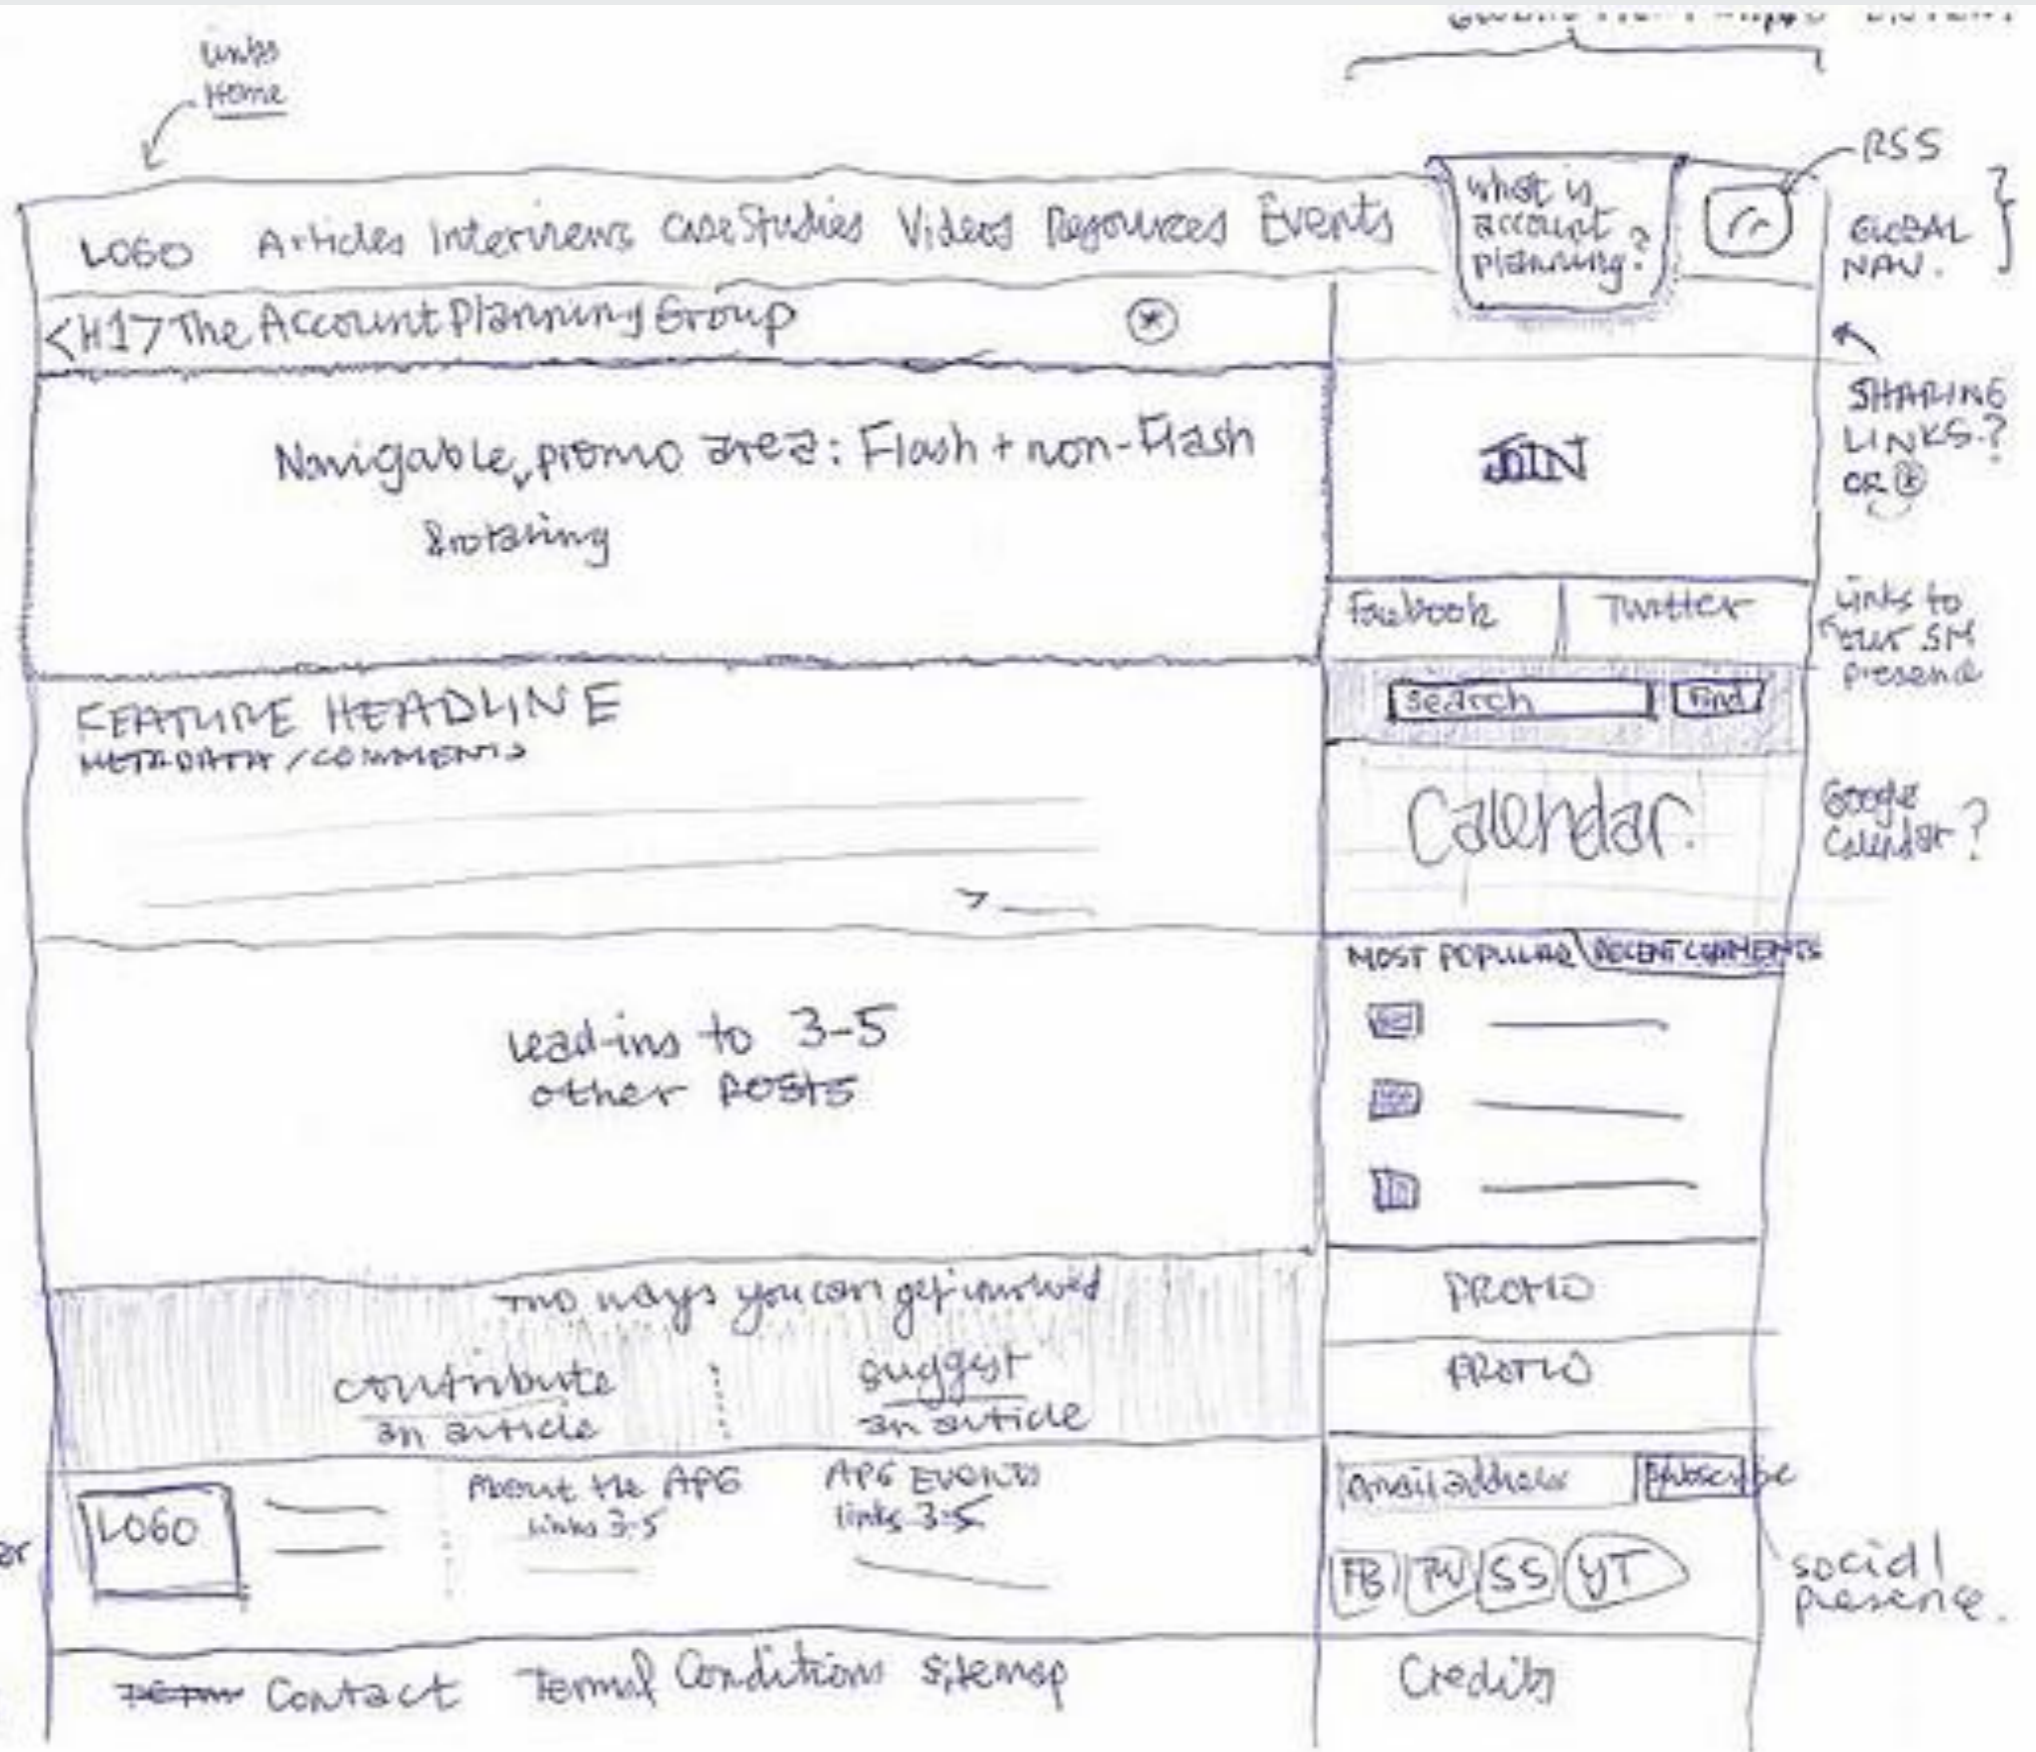 Links
Home
RSS
LOGO Articles Interviews Case Studies Videos Resources Events
what is
account
planning?
GLOBAL
NAV.
<H1> The Account Planning Group *
SHARING
LINKS?
OR *
Navigable, promo area: Flash + non-Flash
& rotating
JOIN
Facebook Twitter
Links to
our SM
presence
Search Find
FEATURE HEADLINE
METADATA / COMMENTS
>
Calendar
Google
Calendar?
MOST POPULAR RECENT COMMENTS
Lead-ins to 3-5
other posts
Two ways you can get involved
contribute
an article
suggest
an article
PROMO
PROMO
LOGO
About the APG
links 3-5
APG EVENTS
links 3-5
email address Subscribe
FB TW SS YT
social
presence.
Contact Terms/ Conditions Sitemap
Credits